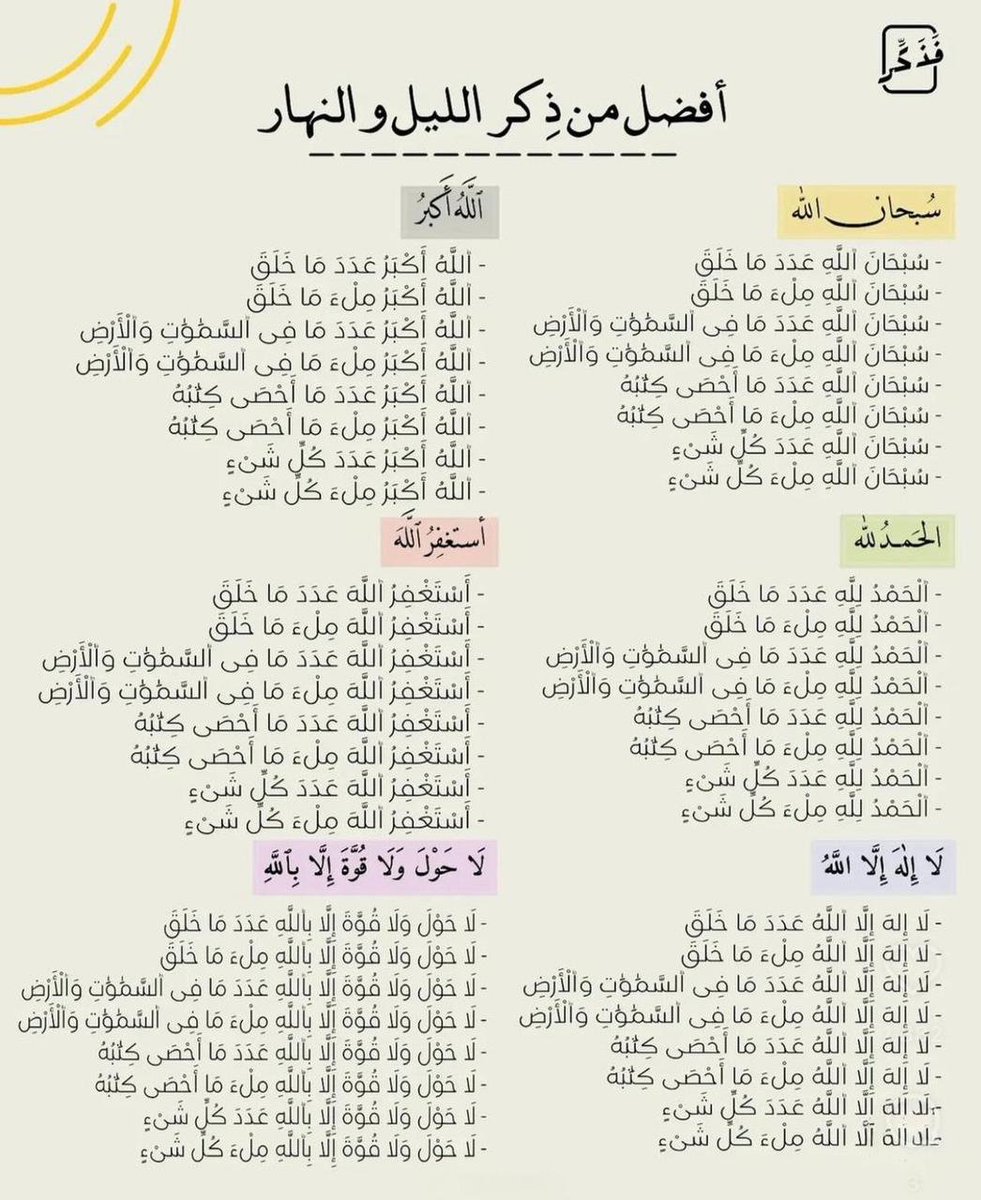 فَذَكِّر
أفضل من ذِكر الليل و النهار
سُبحان الله
- سُبْحَانَ ٱللَّهِ عَدَدَ مَا خَلَقَ
- سُبْحَانَ ٱللَّهِ مِلْءَ مَا خَلَقَ
- سُبْحَانَ ٱللَّهِ عَدَدَ مَا فِى ٱلسَّمَٰوَٰتِ وَٱلْأَرْضِ
- سُبْحَانَ ٱللَّهِ مِلْءَ مَا فِى ٱلسَّمَٰوَٰتِ وَٱلْأَرْضِ
- سُبْحَانَ ٱللَّهِ عَدَدَ مَا أَحْصَى كِتَٰبُهُ
- سُبْحَانَ ٱللَّهِ مِلْءَ مَا أَحْصَى كِتَٰبُهُ
- سُبْحَانَ ٱللَّهِ عَدَدَ كُلِّ شَىْءٍ
- سُبْحَانَ ٱللَّهِ مِلْءَ كُلِّ شَىْءٍ
ٱللَّهُ أَكَبَرُ
- ٱللَّهُ أَكْبَرُ عَدَدَ مَا خَلَقَ
- ٱللَّهُ أَكْبَرُ مِلْءَ مَا خَلَقَ
- ٱللَّهُ أَكْبَرُ عَدَدَ مَا فِى ٱلسَّمَٰوَٰتِ وَٱلْأَرْضِ
- ٱللَّهُ أَكْبَرُ مِلْءَ مَا فِى ٱلسَّمَٰوَٰتِ وَٱلْأَرْضِ
- ٱللَّهُ أَكْبَرُ عَدَدَ مَا أَحْصَى كِتَٰبُهُ
- ٱللَّهُ أَكْبَرُ مِلْءَ مَا أَحْصَى كِتَٰبُهُ
- ٱللَّهُ أَكْبَرُ عَدَدَ كُلِّ شَىْءٍ
- ٱللَّهُ أَكْبَرُ مِلْءَ كُلِّ شَىْءٍ
الحَمدُ لله
- ٱلْحَمْدُ لِلَّهِ عَدَدَ مَا خَلَقَ
- ٱلْحَمْدُ لِلَّهِ مِلْءَ مَا خَلَقَ
- ٱلْحَمْدُ لِلَّهِ عَدَدَ مَا فِى ٱلسَّمَٰوَٰتِ وَٱلْأَرْضِ
- ٱلْحَمْدُ لِلَّهِ مِلْءَ مَا فِى ٱلسَّمَٰوَٰتِ وَٱلْأَرْضِ
- ٱلْحَمْدُ لِلَّهِ عَدَدَ مَا أَحْصَى كِتَٰبُهُ
- ٱلْحَمْدُ لِلَّهِ مِلْءَ مَا أَحْصَى كِتَٰبُهُ
- ٱلْحَمْدُ لِلَّهِ عَدَدَ كُلِّ شَىْءٍ
- ٱلْحَمْدُ لِلَّهِ مِلْءَ كُلِّ شَىْءٍ
أستغفِرُ ٱللَّهَ
- أَسْتَغْفِرُ ٱللَّهَ عَدَدَ مَا خَلَقَ
- أَسْتَغْفِرُ ٱللَّهَ مِلْءَ مَا خَلَقَ
- أَسْتَغْفِرُ ٱللَّهَ عَدَدَ مَا فِى ٱلسَّمَٰوَٰتِ وَٱلْأَرْضِ
- أَسْتَغْفِرُ ٱللَّهَ مِلْءَ مَا فِى ٱلسَّمَٰوَٰتِ وَٱلْأَرْضِ
- أَسْتَغْفِرُ ٱللَّهَ عَدَدَ مَا أَحْصَى كِتَٰبُهُ
- أَسْتَغْفِرُ ٱللَّهَ مِلْءَ مَا أَحْصَى كِتَٰبُهُ
- أَسْتَغْفِرُ ٱللَّهَ عَدَدَ كُلِّ شَىْءٍ
- أَسْتَغْفِرُ ٱللَّهَ مِلْءَ كُلِّ شَىْءٍ
لَا إِلَٰهَ إِلَّا اللَّهُ
- لَا إِلهَ إِلَّا ٱللَّهُ عَدَدَ مَا خَلَقَ
- لَا إِلهَ إِلَّا ٱللَّهُ مِلْءَ مَا خَلَقَ
- لَا إِلهَ إِلَّا ٱللَّهُ عَدَدَ مَا فِى ٱلسَّمَٰوَٰتِ وَٱلْأَرْضِ
- لَا إِلهَ إِلَّا ٱللَّهُ مِلْءَ مَا فِى ٱلسَّمَٰوَٰتِ وَٱلْأَرْضِ
- لَا إِلهَ إِلَّا ٱللَّهُ عَدَدَ مَا أَحْصَى كِتَٰبُهُ
- لَا إِلهَ إِلَّا ٱللَّهُ مِلْءَ مَا أَحْصَى كِتَٰبُهُ
- لَا إِلهَ إِلَّا ٱللَّهُ عَدَدَ كُلِّ شَىْءٍ
- لَا إِلهَ إِلَّا ٱللَّهُ مِلْءَ كُلِّ شَىْءٍ
لَا حَوْلَ وَلَا قُوَّةَ إِلَّا بِٱللَّهِ
- لَا حَوْلَ وَلَا قُوَّةَ إِلَّا بِٱللَّهِ عَدَدَ مَا خَلَقَ
- لَا حَوْلَ وَلَا قُوَّةَ إِلَّا بِٱللَّهِ مِلْءَ مَا خَلَقَ
- لَا حَوْلَ وَلَا قُوَّةَ إِلَّا بِٱللَّهِ عَدَدَ مَا فِى ٱلسَّمَٰوَٰتِ وَٱلْأَرْضِ
- لَا حَوْلَ وَلَا قُوَّةَ إِلَّا بِٱللَّهِ مِلْءَ مَا فِى ٱلسَّمَٰوَٰتِ وَٱلْأَرْضِ
- لَا حَوْلَ وَلَا قُوَّةَ إِلَّا بِٱللَّهِ عَدَدَ مَا أَحْصَى كِتَٰبُهُ
- لَا حَوْلَ وَلَا قُوَّةَ إِلَّا بِٱللَّهِ مِلْءَ مَا أَحْصَى كِتَٰبُهُ
- لَا حَوْلَ وَلَا قُوَّةَ إِلَّا بِٱللَّهِ عَدَدَ كُلِّ شَىْءٍ
- لَا حَوْلَ وَلَا قُوَّةَ إِلَّا بِٱللَّهِ مِلْءَ كُلِّ شَىْءٍ